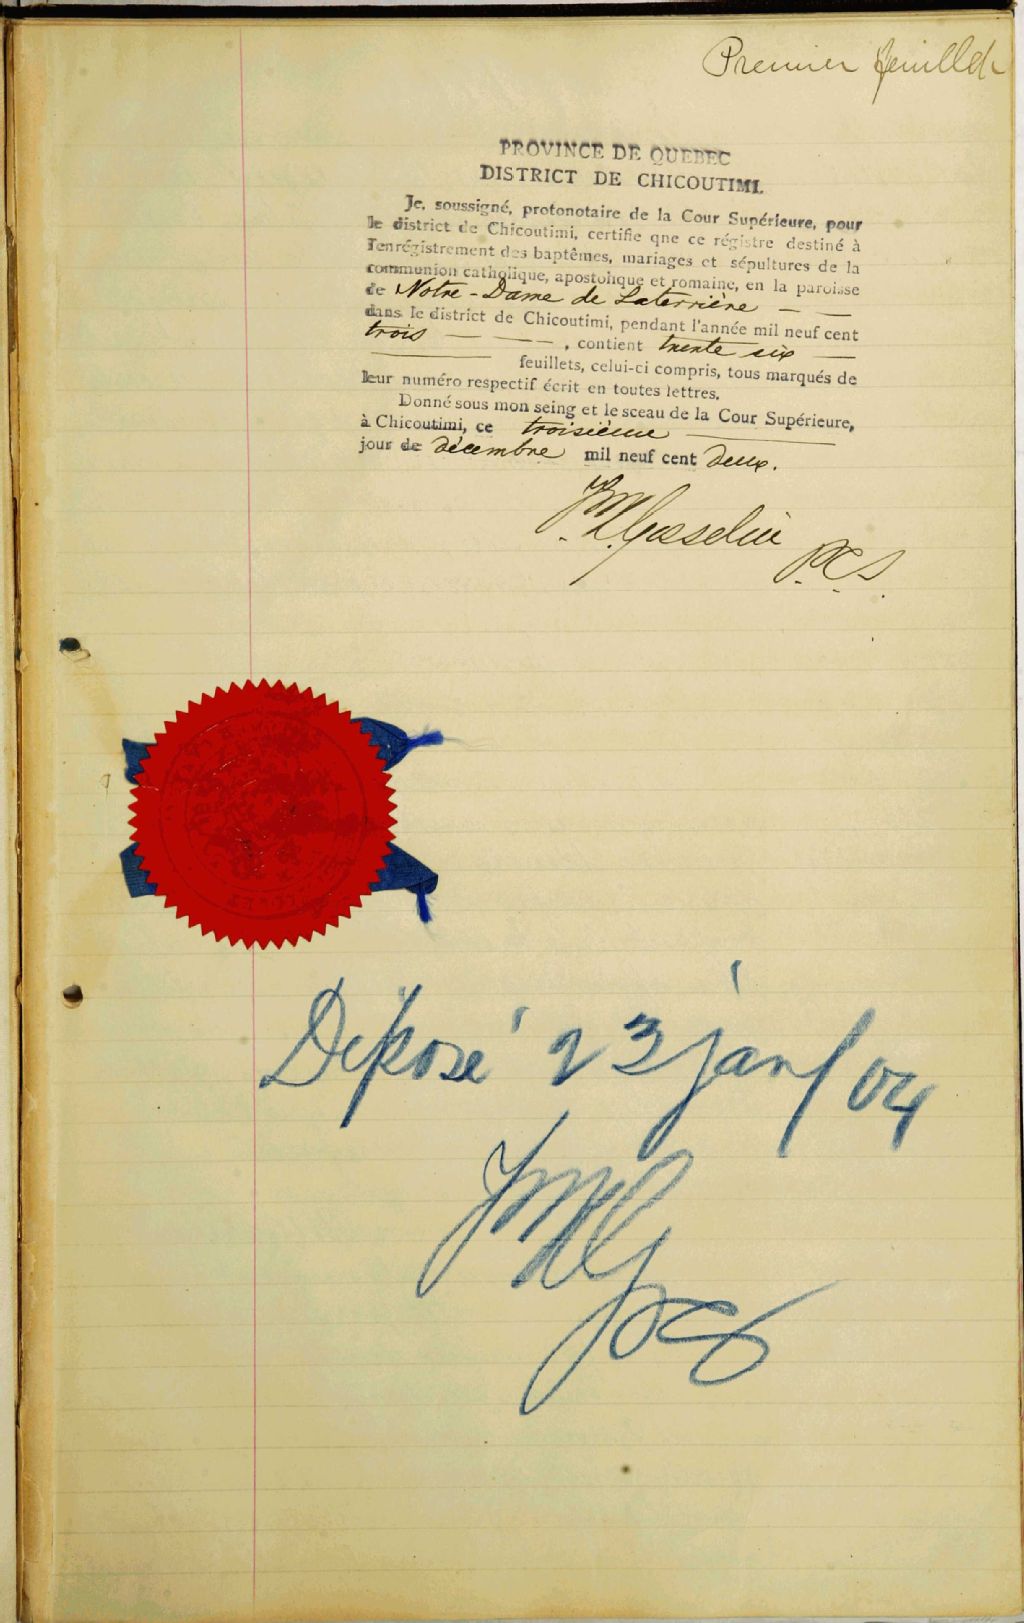 Premier feuillet
PROVINCE DE QUEBEC
DISTRICT DE CHICOUTIMI.
Je, soussigné, protonotaire de la Cour Supérieure, pour
le district de Chicoutimi, certifie qne ce régistre destiné à
l'enrégistrement des baptêmes, mariages et sépultures de la
communion catholique, apostolique et romaine, en la paroisse
de Notre-Dame de Laterrière — —
dans le district de Chicoutimi, pendant l'année mil neuf cent
trois — — —, contient trente six —
— feuillets, celui-ci compris, tous marqués de
leur numéro respectif écrit en toutes lettres.
Donné sous mon seing et le sceau de la Cour Supérieure,
à Chicoutimi, ce troisième —
jour de décembre mil neuf cent deux.
Gosselin P.C.S.
Déposé 23 janv 04